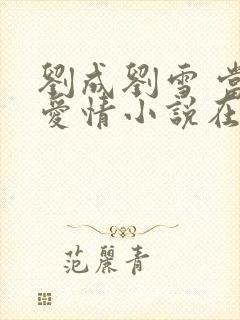 劉成劉雪
愛情小說在
范麗青